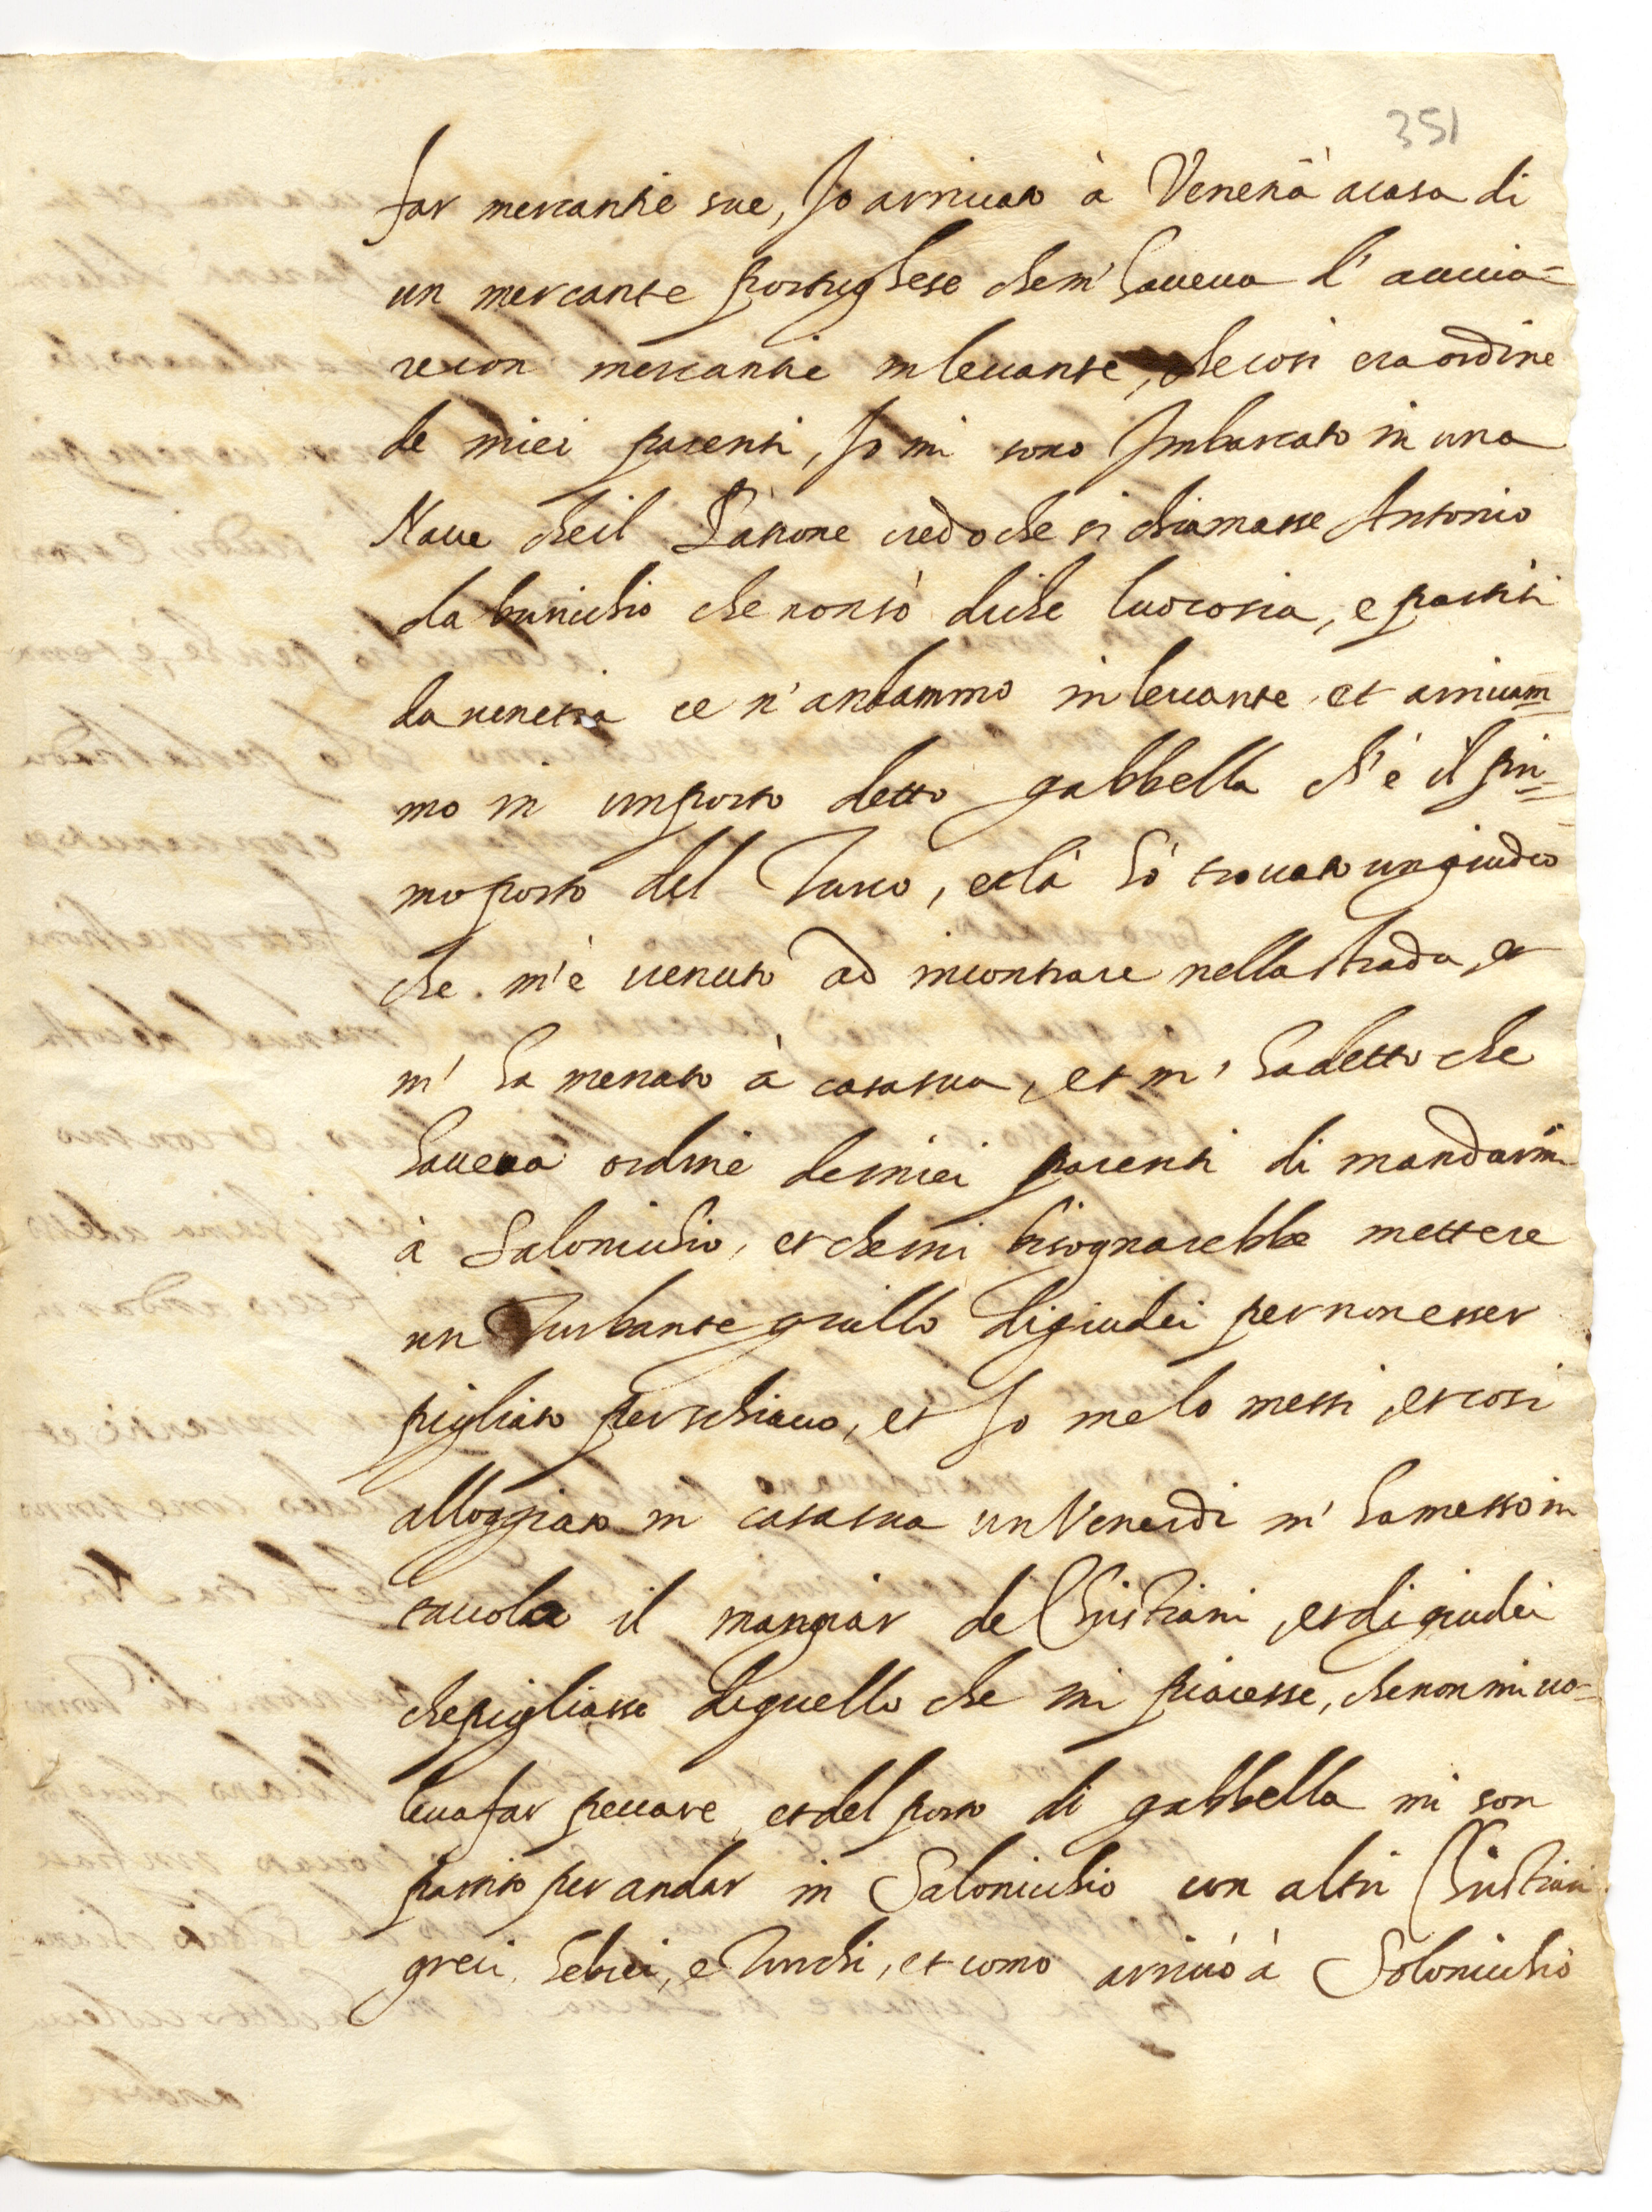 351
far mercantie sue, Io arriuato à Venetia à casa di
un mercante portughese che m' haueua d' auuia=
re con mercantie in leuante, che cosi era ordine
de miei parenti, Io mi sono Imbarcato in una
Naue che il Patrone credo che si chiamasse Antonio
da che non sò di che luoco sia, e partiti
da uenetia ce n' andammo in leuante et arriuam=
mo in un porto detto gabbella ch' è il pri=
mo porto del Turco, et là hò trouato un giudeo
che m' è uenuto ad incontrare nella strada, et
m' ha menato à casa sua, et m' ha detto che
haueua ordine de miei parenti di mandarmi
à Salonicchio, et che mi bisognarebbe mettere
un Turbante giallo di giudei per non esser
pigliato per schiauo, et Io me lo messi, et cosi
alloggiato in casa sua un Venerdi m' ha messo in
tauola il mangiar de Christiani, et di giudei
che pigliasse di quello che mi piacesse, che non mi uo=
leua far peccare, et del porto di gabbella mi son
partito per andar in Salonicchio con altri Christiani
greci, hebrei, e Turchi, et como arriuò à Solonicchio